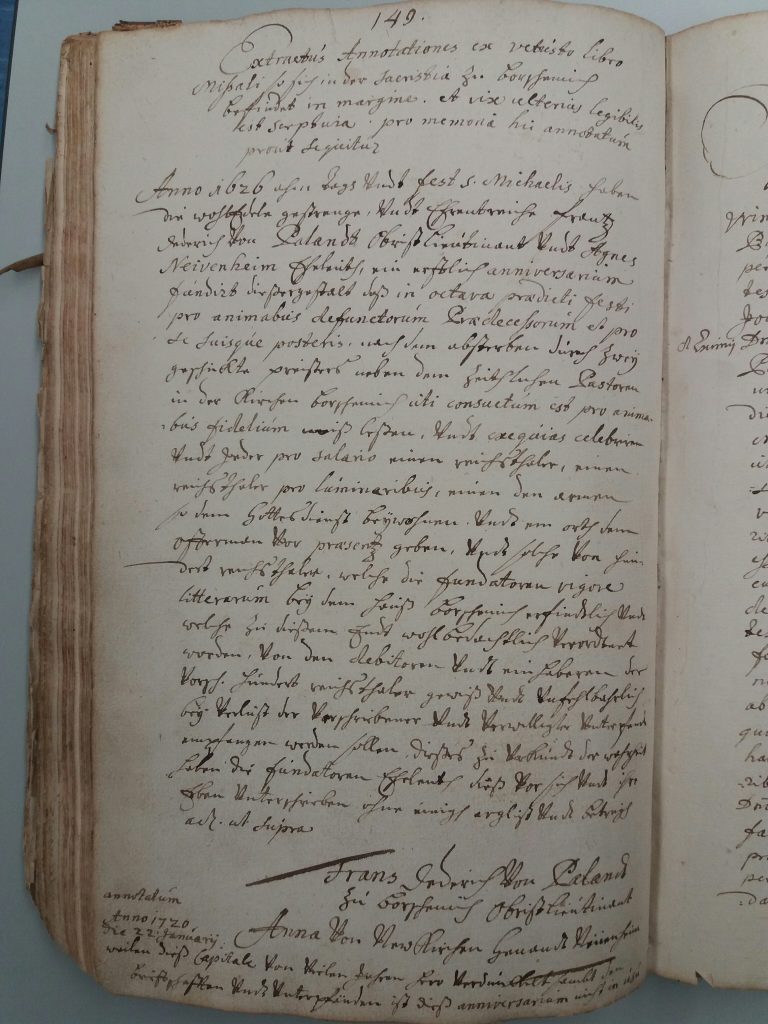 149.
Extractus Annotationes ex vetusto libro
Missali so sich in der Sacristia zu Borschemich
befindet in margine. et vix ulterius legibilis
est scriptura. pro memoria hic annotatum
prout sequitur
Anno 1626 ahm tags Undt fest S. Michaelis haben
die wohlEdele gestrenge, Undt Ehrentreiche Frantz
Dederich Von Palandt Obristlieutinant Undt Agnes
Neivenheim Eheleuth, ein erblich anniversarium
fundirt dießergestalt daß in octava praedicti festi
pro animabus defunctorum Praedecessorum et pro
se suisque posteris. nach dem absterben durch zwey
geschickte priesters neben dem zeithlichen Pastoren
in der Kirchen Borschemich uti consuetum est pro anima-
bus fidelium miß leßen, Undt exequias celebriren
Undt Jeder pro salario einen reichsthaler, einen
reichsthaler pro luminaribus, einen den armen
so dem Gottesdienst beywohnen. Undt ein orth dem
offerman Vor praesentz geben, Undt solche Von hun-
dert reichsthaler. welche die fundatoren vigore
litterarum bey dem hauß Borschemich erfindtlich Undt
welche zu dießem Endt wohlbedachtlich Verordtnet
worden, Von den debitoren Undt einhaberen der
Vorsch. hundert reichsthaler gewiß Undt Unfehlbahrlich
bey Verlust der Vorschriebener Undt Verwilligter Unterpfandt
empfangen werden sollen. dießes zu Uhrkundt der wahrheit
haben die fundatoren Eheleuth dieß Vor sich Undt ihre
Erben Unterschrieben ohne einigh arglist Undt betrugh
act. ut supra
Frans Dederich Von Palandt
zu Borschemich Obristlieutinant
Anna Von NewKirchen Genandt Neivenheim
annotatum
Anno 1720
die 22 January.
weilen dieß Capitale Von Vielen Jahren hero Verdunckelt sambt den
briefschafften Undt Unterpfänden ist dieß anniversarium nicht in usu